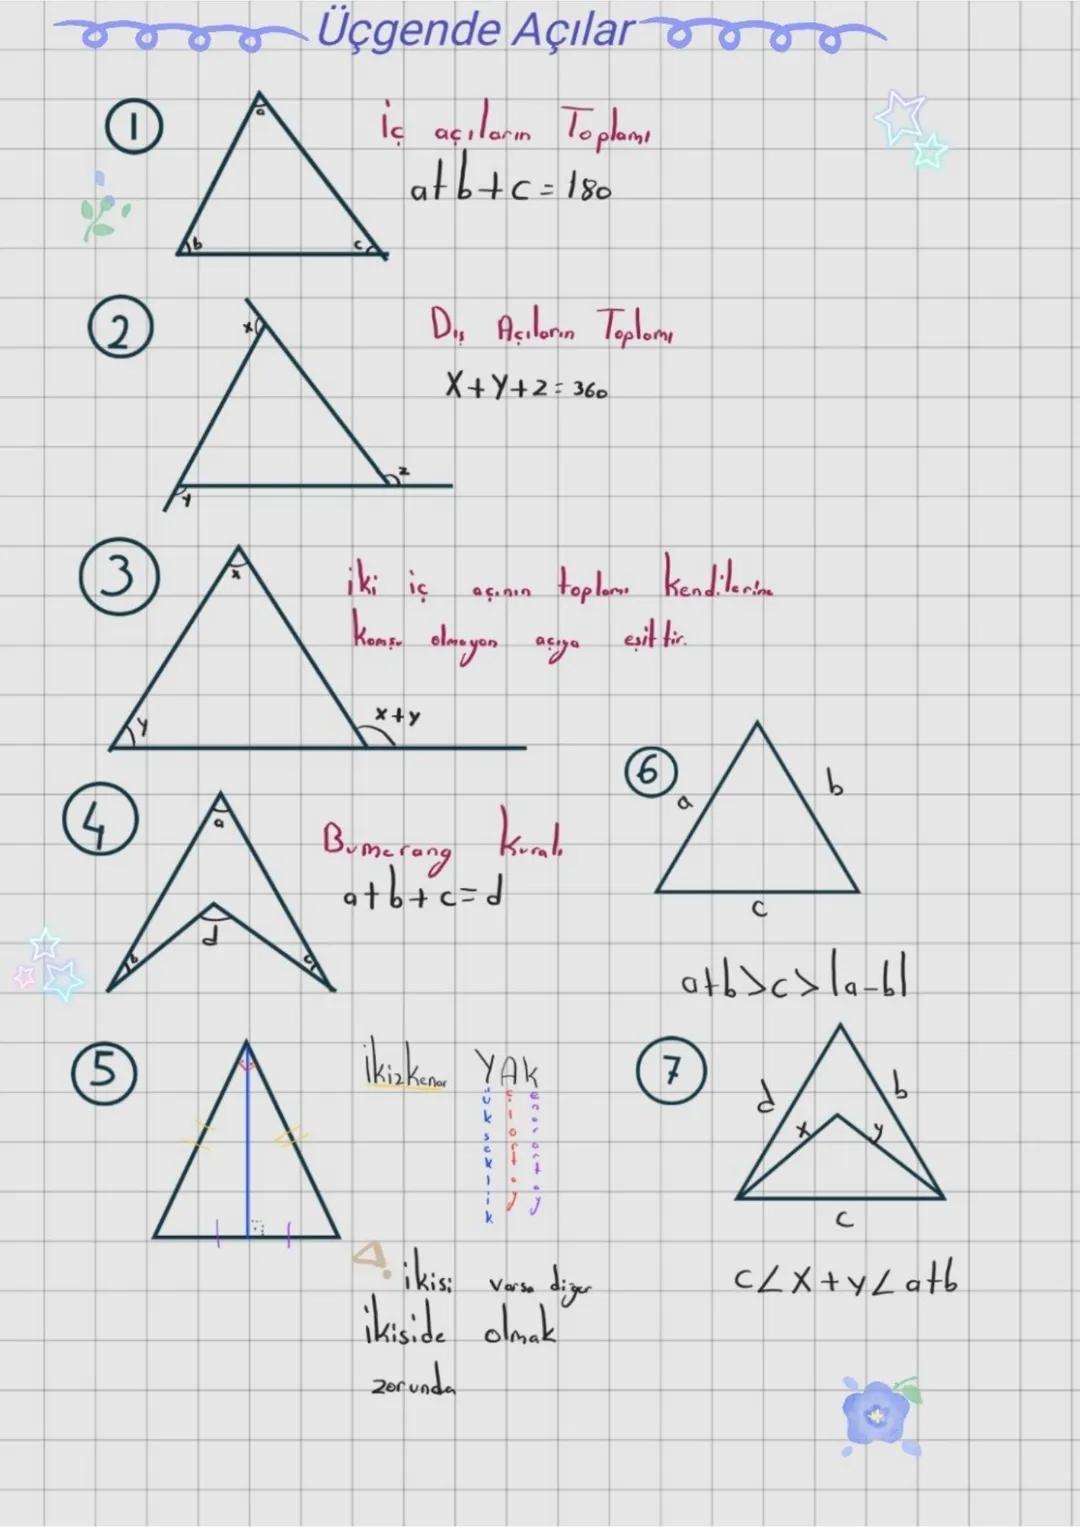 Üçgende Açılar
1
a
b
c
İç açıların Toplamı
a+b+c=180
2
x
y
z
Dış Açıların Toplamı
X+Y+2=360
3
x
y
x+y
iki iç açının toplamı kendilerine
komşu olmayan açıya eşittir.
4
a
b
c
d
Bumerang Kuralı
a+b+c=d
5
İkizkenar YAK
Yükseklik
Açıortay
Kenarortay
ikisi varsa diğer
ikiside olmak
zorunda
6
a
b
c
a+b>c>|a-b|
7
d
b
x
y
c
c<x+y<a+b